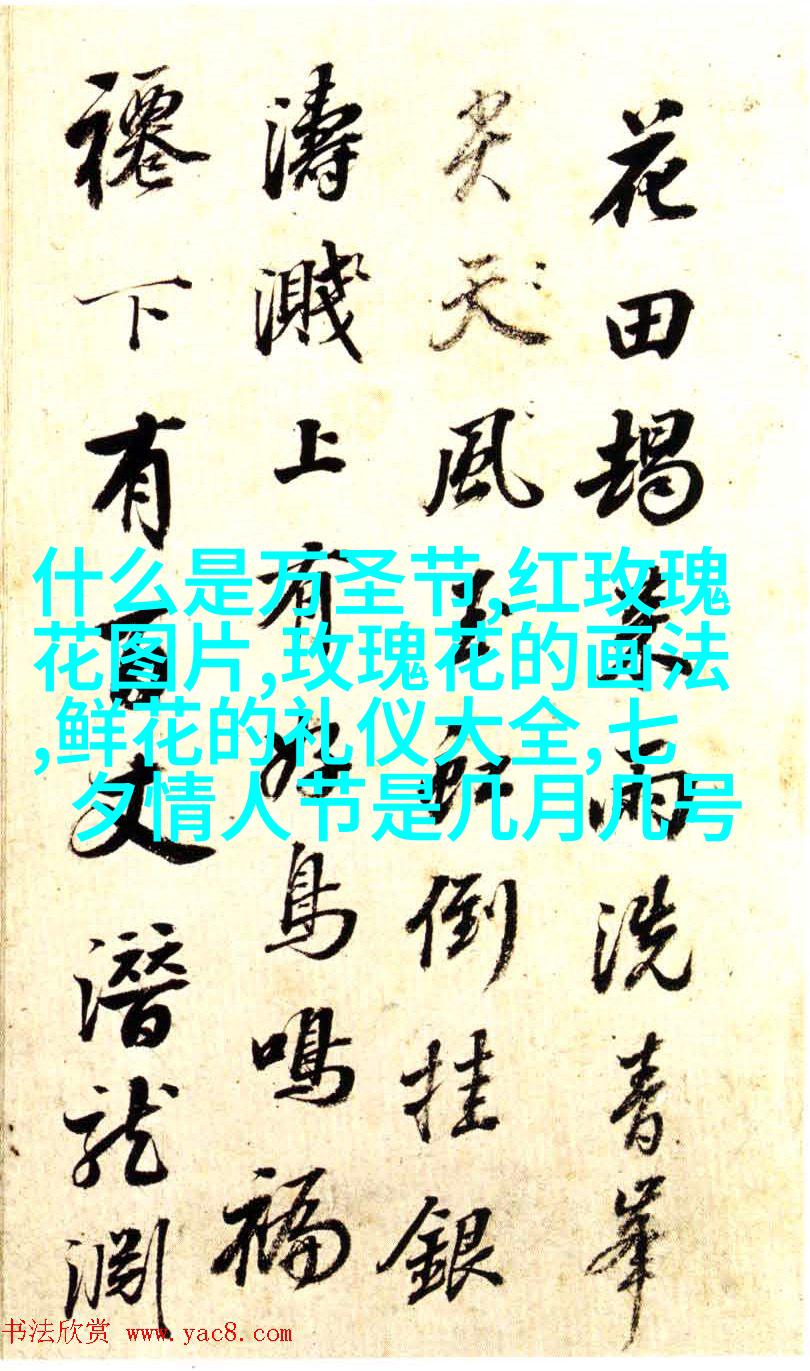 花田朅來雨洗青峯
尖天風玉虹倒挂銀
濤濺上有好鳥鳴福
下有百丈潛龍淵
什么是万圣节,红玫瑰
花图片,玫瑰花的画法
,鲜花的礼仪大全,七
夕情人节是几月几号
书法欣赏 www.yac8.com